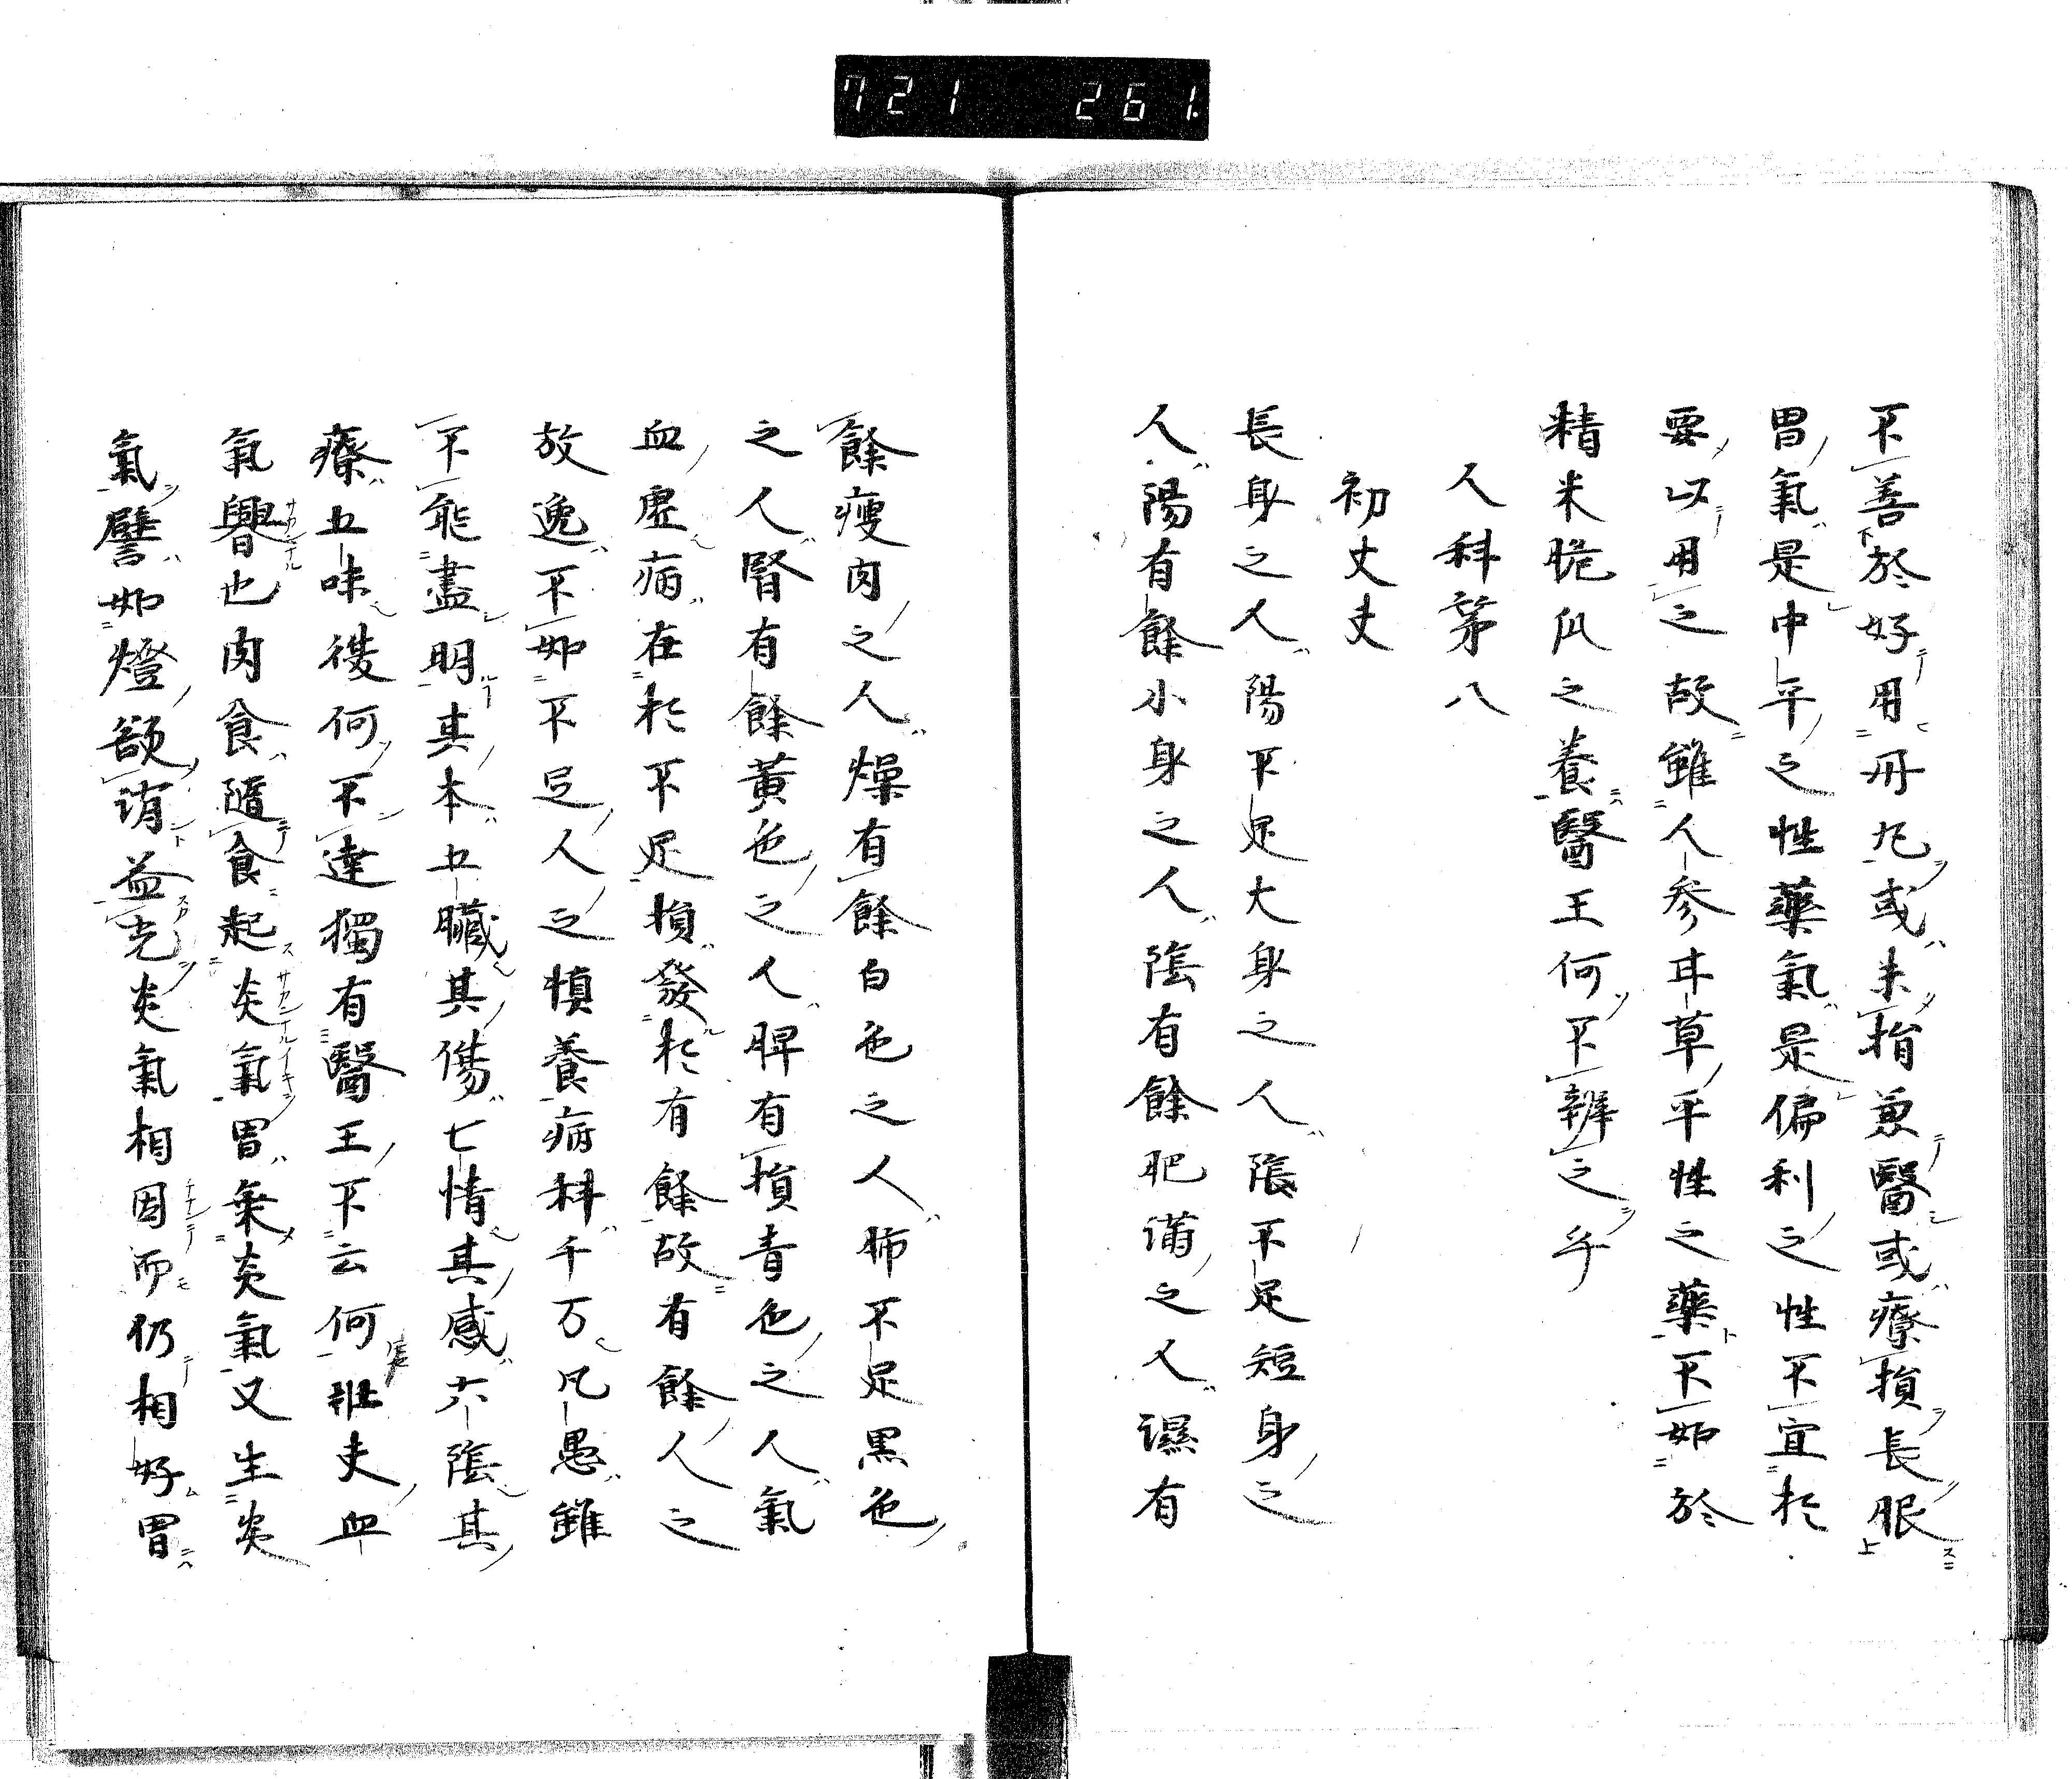 721 261
不善於好用丹丸或未損兼醫或療損長服
胃氣是中平之性藥氣是偏利之性不宜於
要以用之故雖人參甘草平性之藥不如於
精米脆瓜之養醫王何不辨之乎
人科第八
初丈夫
長身之人陽不足大身之人陰不足短身之
人陽有餘小身之人陰有餘肥満之人濕有
餘瘦肉之人燥有餘白色之人肺不足黒色
之人腎有餘黄色之人脾有損青色之人氣
血虛病在於不足損發於有餘故有餘人之
放逸不如不足人之慎養病科千万凡愚雖
不能盡明其本五臓其傷七情其感六陰其
療五味後何不達獨有醫王不云何壯夫血
氣譽也肉食隨食起炎氣胃乗炎氣又生炎
氣譬如燈欲消益光炎氣相因而仍相好胃